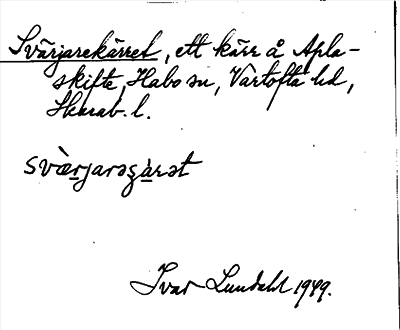 Svärjarekärret, ett kärr å Apla-
skifte, Habo sn, Vartofta hd,
Skarab. l.
svæ̀rjarəɕæ̀rət
Ivar Lundahl 1949.